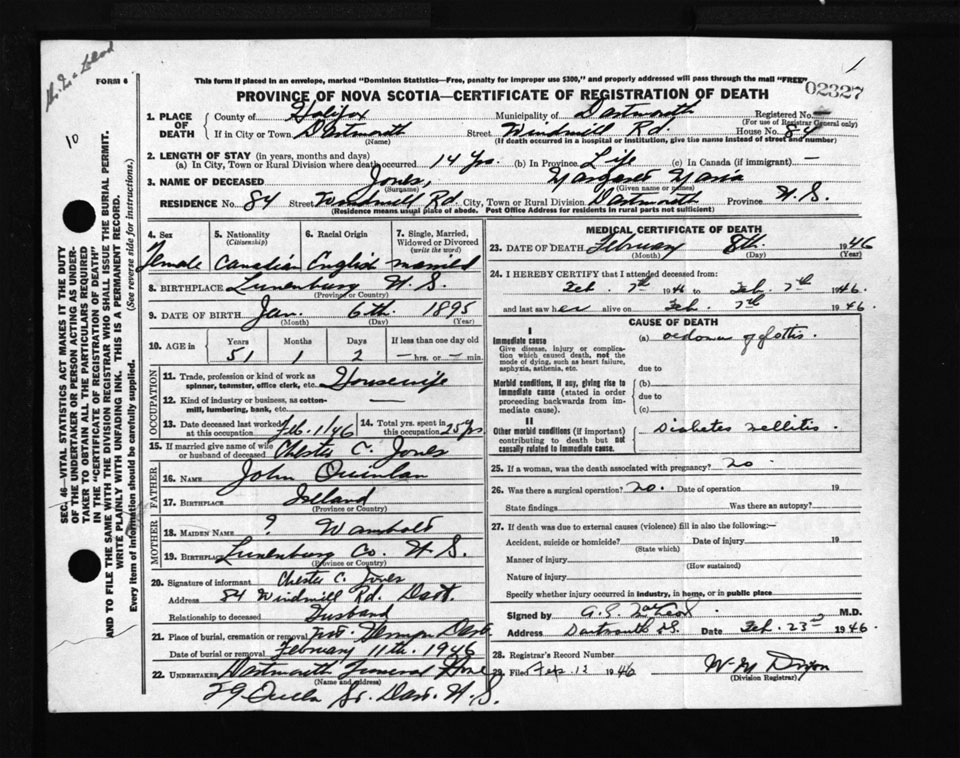 FORM 6
This form if placed in an envelope, marked "Dominion Statistics—Free, penalty for improper use $300," and properly addressed will pass through the mail "FREE"
1
02327
10
PROVINCE OF NOVA SCOTIA—CERTIFICATE OF REGISTRATION OF DEATH
1. PLACE OF DEATH County of Halifax Municipality of Dartmouth Registered No. (For use of Registrar General only)
If in City or Town Dartmouth (Name) Street Windmill Rd. House No. 84
(If death occurred in a hospital or institution, give the name instead of street and number)
2. LENGTH OF STAY (in years, months and days)
(a) In City, Town or Rural Division where death occurred 14 Yrs. (b) In Province Life (c) In Canada (if immigrant) —
3. NAME OF DECEASED Jones, (Surname) Margaret Maria (Given name or names)
RESIDENCE No. 84 Street Windmill Rd. City, Town or Rural Division Dartmouth Province N.S.
(Residence means usual place of abode. Post Office Address for residents in rural parts not sufficient)
SEC. 46—VITAL STATISTICS ACT MAKES IT THE DUTY
OF THE UNDERTAKER OR PERSON ACTING AS UNDER-
TAKER TO OBTAIN ALL THE PARTICULARS REQUIRED
IN THE "CERTIFICATE OF REGISTRATION OF DEATH"
AND TO FILE THE SAME WITH THE DIVISION REGISTRAR WHO SHALL ISSUE THE BURIAL PERMIT.
WRITE PLAINLY WITH UNFADING INK. THIS IS A PERMANENT RECORD.
Every item of information should be carefully supplied. (See reverse side for instructions.)
4. Sex 5. Nationality (Citizenship) 6. Racial Origin 7. Single, Married, Widowed or Divorced (write the word)
Female Canadian English married
8. BIRTHPLACE Lunenburg N.S.
(Province or Country)
9. DATE OF BIRTH Jan. 6th 1895
(Month) (Day) (Year)
10. AGE in Years Months Days If less than one day old
51 1 2 — hrs. or — min.
OCCUPATION
11. Trade, profession or kind of work as spinner, teamster, office clerk, etc. Housewife
12. Kind of industry or business, as cotton-mill, lumbering, bank, etc. —
13. Date deceased last worked at this occupation Feb. 1/46 14. Total yrs. spent in this occupation 25 yrs.
15. If married give name of wife or husband of deceased Chester C. Jones
FATHER
16. Name John Quinlan
17. Birthplace Ireland
(Province or Country)
MOTHER
18. MAIDEN NAME ? Wambolt
19. Birthplace Lunenburg Co. N.S.
(Province or Country)
20. Signature of informant Chester C. Jones
Address 84 Windmill Rd. Dart.
Relationship to deceased Husband
21. Place of burial, cremation or removal Dart.
Date of burial or removal February 11th. 1946
22. UNDERTAKER Dartmouth Funeral Home
(Name and address)
29 Queen St. Dart. N.S.
MEDICAL CERTIFICATE OF DEATH
23. DATE OF DEATH February 8th. 1946
(Month) (Day) (Year)
24. I HEREBY CERTIFY that I attended deceased from:
Feb. 7th 1946 to Feb. 7th 1946.
and last saw her alive on Feb. 7th 1946.
CAUSE OF DEATH
I
Immediate cause
Give disease, injury or complication which caused death, not the mode of dying, such as heart failure, asphyxia, asthenia, etc.
(a) oedema of glottis.
due to
Morbid conditions, if any, giving rise to immediate cause (stated in order proceeding backwards from immediate cause).
(b)
due to
(c)
II
Other morbid conditions (if important) contributing to death but not causally related to immediate cause.
Diabetes Mellitis.
25. If a woman, was the death associated with pregnancy? no.
26. Was there a surgical operation? no. Date of operation 19
State findings Was there an autopsy?
27. If death was due to external causes (violence) fill in also the following:—
Accident, suicide or homicide? Date of injury 19
(State which)
Manner of injury
(How sustained)
Nature of injury
Specify whether injury occurred in industry, in home, or in public place
Signed by G.E. McLeod M.D.
Address Dartmouth N.S. Date Feb. 23rd 1946.
28. Registrar's Record Number
29. Filed Feb. 12 1946 W. M. Dixon
(Division Registrar)